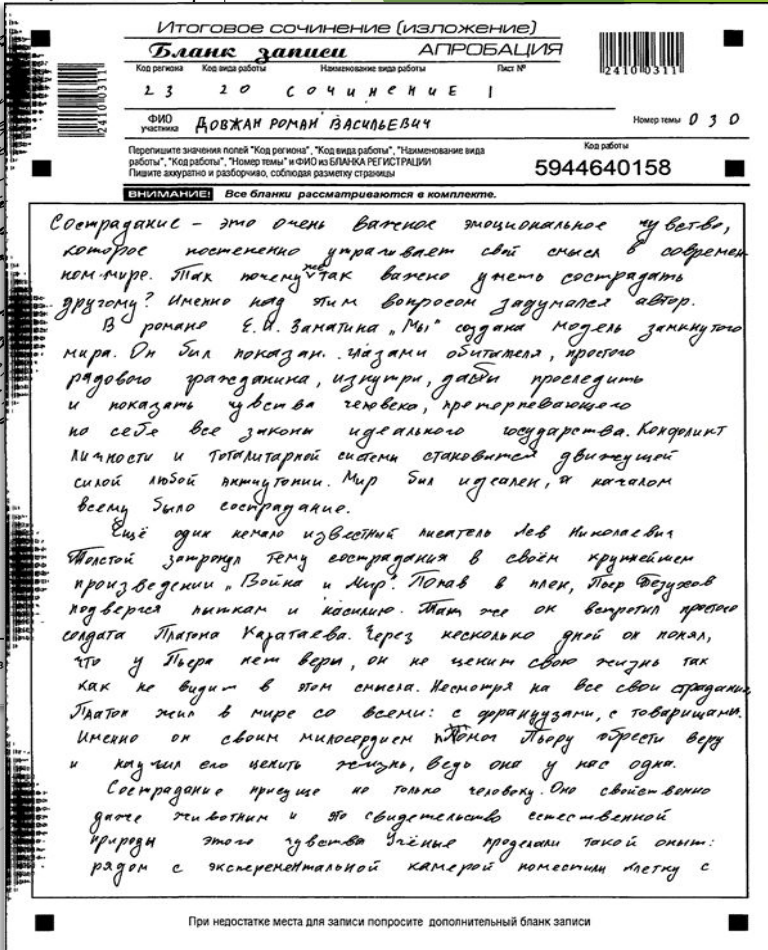 Итоговое сочинение (изложение)
Бланк записи АПРОБАЦИЯ
Код региона Код вида работы Наименование вида работы Лист №
2 3 2 0 С О Ч И Н Е Н И Е 1
2410 0311
2410 0311
ФИО участника ДОВЖАН РОМАН ВАСИЛЬЕВИЧ Номер темы 0 3 0
Перепишите значения полей "Код региона", "Код вида работы", "Наименование вида
работы", "Код работы", "Номер темы" и ФИО из БЛАНКА РЕГИСТРАЦИИ
Пишите аккуратно и разборчиво, соблюдая разметку страницы
Код работы
5944640158
ВНИМАНИЕ! Все бланки рассматриваются в комплекте.
Сострадание – это очень важное эмоциональное чувство,
которое постепенно утрачивает свой смысл в современ
ном мире. Так почему же так важно уметь сострадать
другому? Именно над этим вопросом задумался автор.
В романе Е.И. Заматина „Мы" создана модель замкнутого
мира. Он был показан глазами обитателя, простого
рядового гражданина, изнутри, дабы проследить
и показать чувства человека, претерпевающего
по себе все законы идеального государства. Конфликт
личности и тоталитарной системы становится движущей
силой любой антиутопии. Мир был идеален, а началом
всему было сострадание.
Ещё один немало известный писатель Лев Николаевич
Толстой затронул тему сострадания в своём крупнейшем
произведении „Война и Мир". Попав в плен, Пьер Безухов
подвергся пыткам и насилию. Там же он встретил простого
солдата Платона Каратаева. Через несколько дней он понял,
что у Пьера нет веры, он не ценит свою жизнь так
как не видит в этом смысла. Несмотря на все свои страдания,
Платон жил в мире со всеми: с французами, с товарищами.
Именно он своим милосердием помог Пьеру обрести веру
и научил его ценить жизнь, ведь она у нас одна.
Сострадание присуще не только человеку. Оно свойственно
даже животным и это свидетельство естественной
природы этого чувства Учёные проделали такой опыт:
рядом с эксперементальной камерой поместили клетку с
При недостатке места для записи попросите дополнительный бланк записи